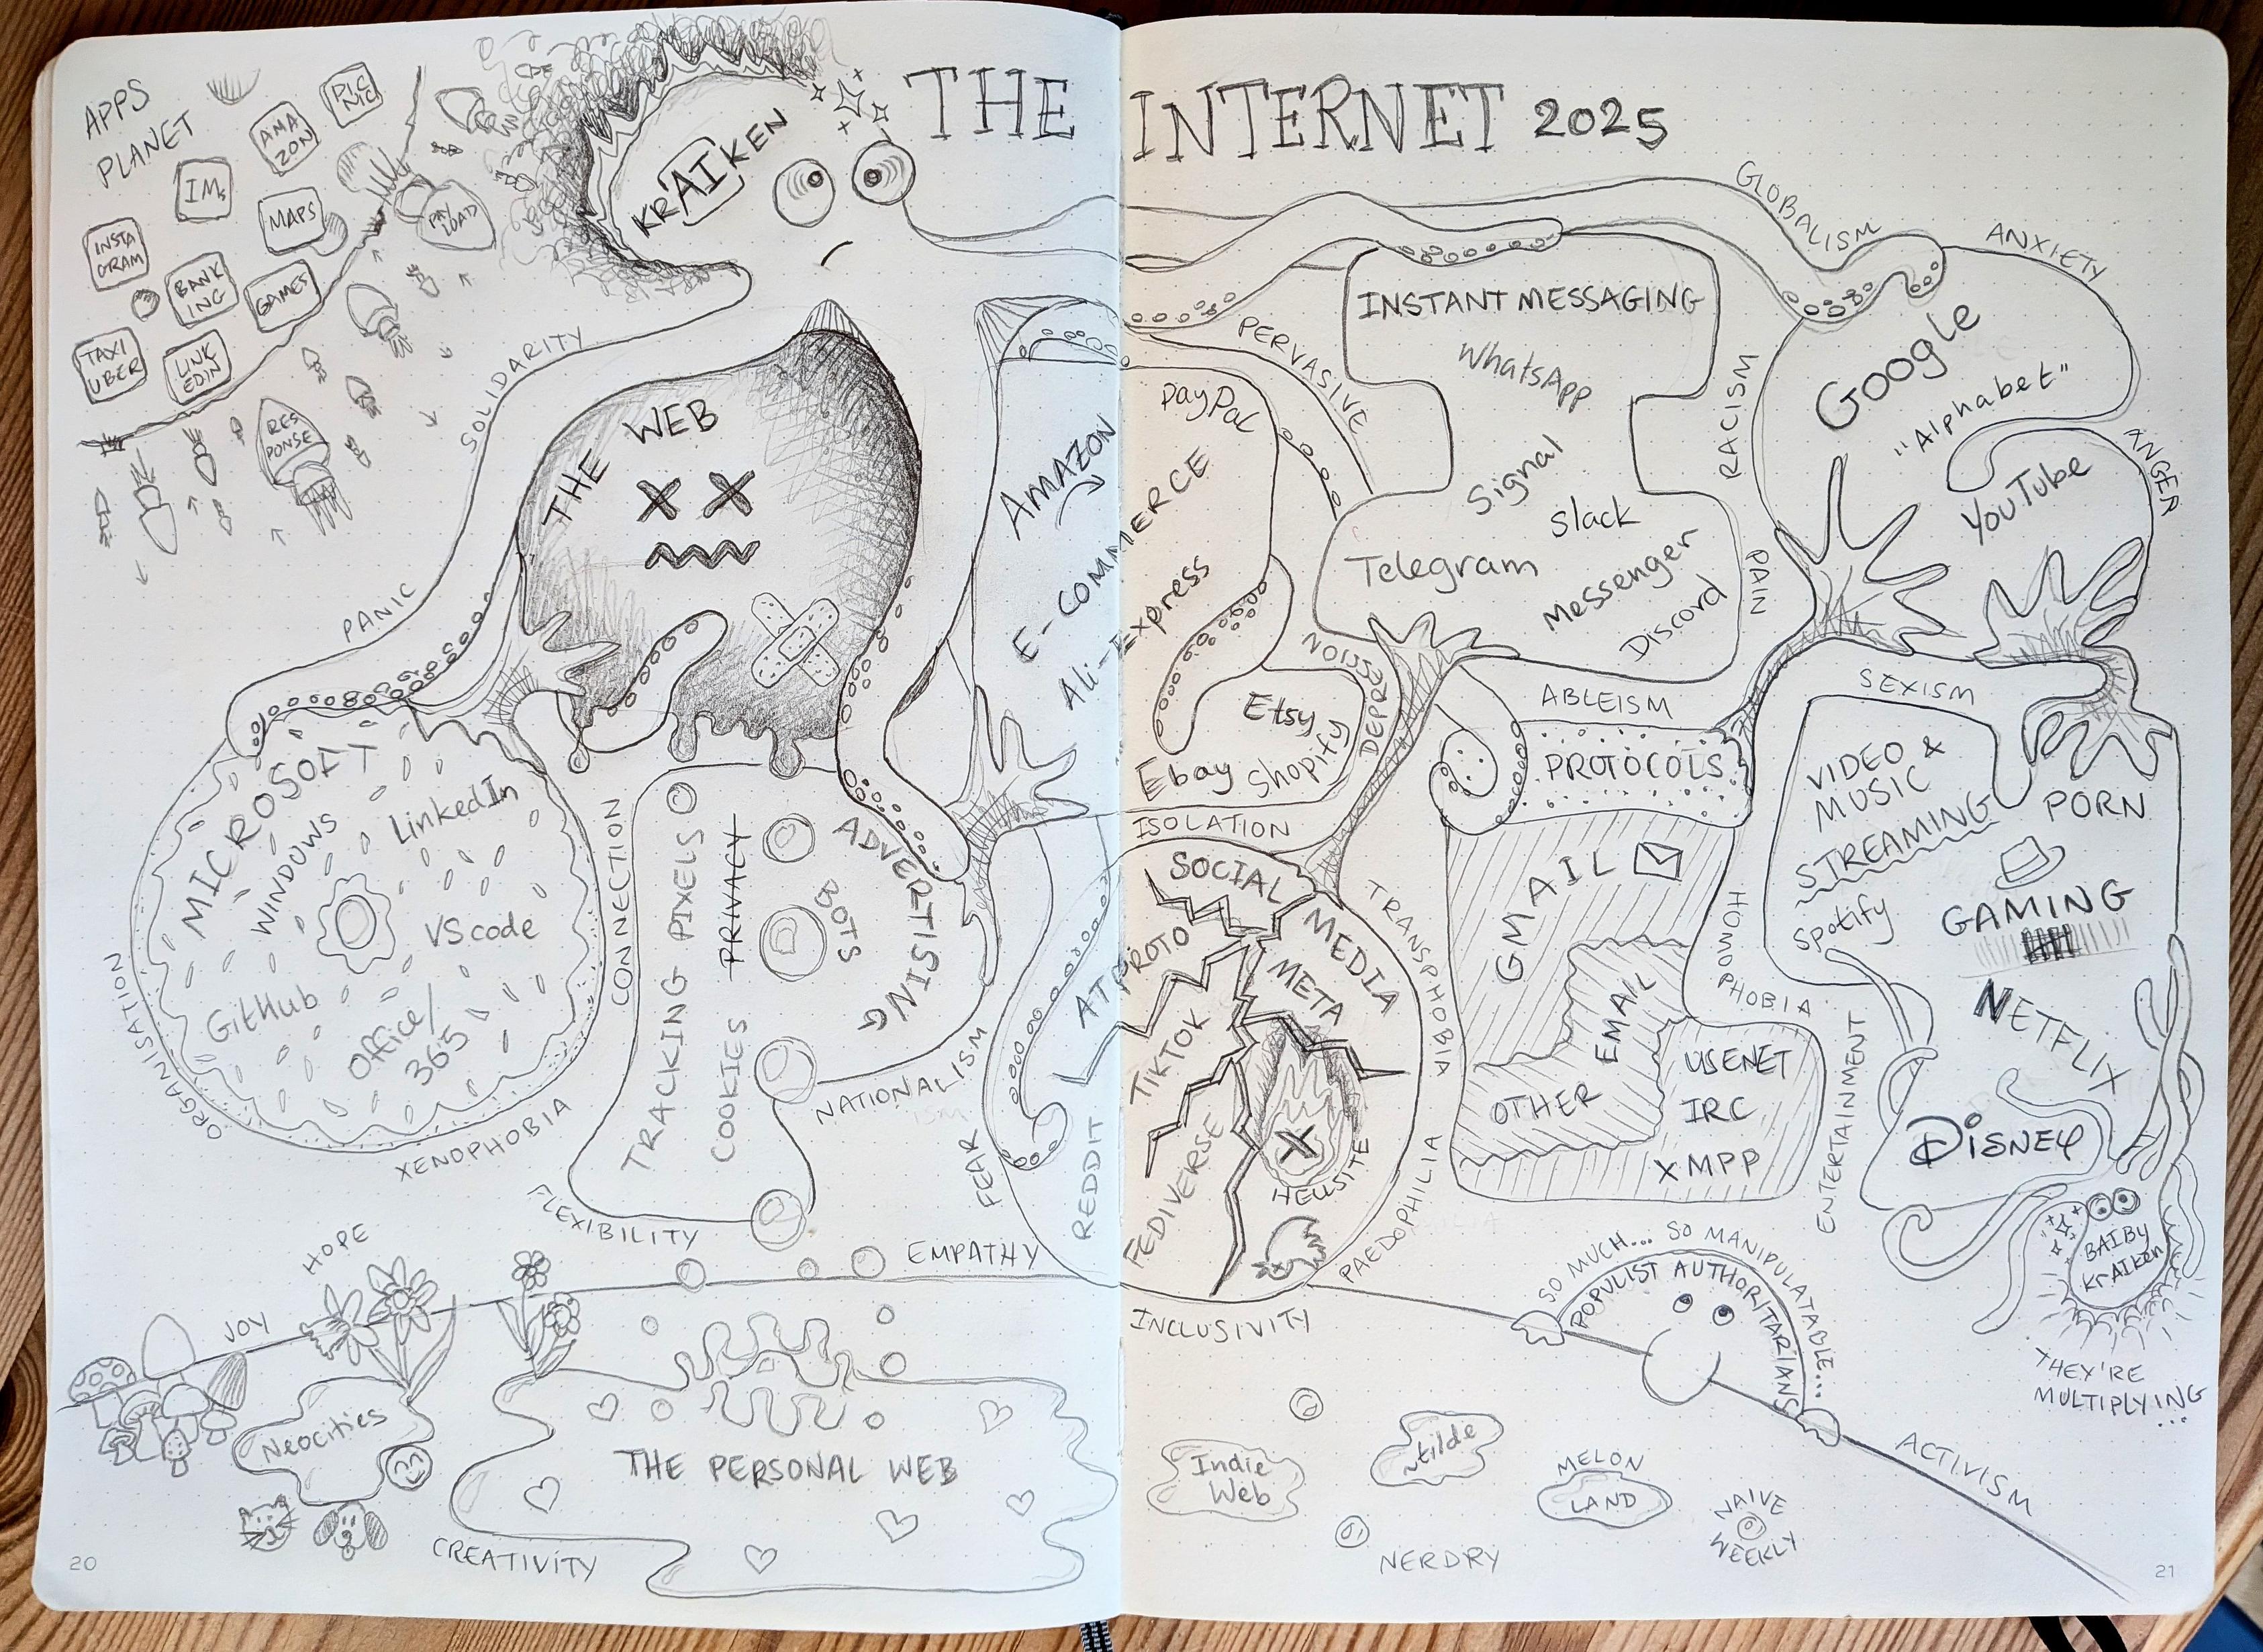 THE INTERNET 2025
APPS
PLANET
PIC
NIC
AMA
ZON
IMs
MAPS
INSTA
GRAM
BANK
ING
GAMES
TAXI
UBER
LINK
EDIN
PAY
LOAD
RES
PONSE
KRAIKEN
SOLIDARITY
PANIC
THE WEB
MICROSOFT
WINDOWS
LinkedIn
VS code
GitHub
Office/
365
ORGANISATION
XENOPHOBIA
CONNECTION
FLEXIBILITY
TRACKING PIXELS
COOKIES
PRIVACY
BOTS
ADVERTISING
NATIONALISM
FEAR
EMPATHY
AMAZON
E-COMMERCE
Ali-Express
PayPal
Etsy
Ebay
Shopify
PERVASIVE
NOISE
DEPRESSION
ISOLATION
INSTANT MESSAGING
WhatsApp
Signal
Slack
Telegram
Messenger
Discord
GLOBALISM
ANXIETY
RACISM
PAIN
ANGER
Google
"Alphabet"
YouTube
ABLEISM
SEXISM
PROTOCOLS
GMAIL
EMAIL
OTHER
USENET
IRC
XMPP
HOMOPHOBIA
ENTERTAINMENT
VIDEO &
MUSIC
STREAMING
Spotify
PORN
GAMING
NETFLIX
DISNEY
BAIBY
KrAIken
THEY'RE
MULTIPLYING
...
SOCIAL MEDIA
META
ATPROTO
TIKTOK
REDDIT
FEDIVERSE
X
HELLSITE
TRANSPHOBIA
PAEDOPHILIA
INCLUSIVITY
SO MUCH... SO MANIPULATABLE...
POPULIST AUTHORITARIANS
ACTIVISM
HOPE
JOY
Neocities
CREATIVITY
THE PERSONAL WEB
Indie
Web
~tilde
MELON
LAND
NAIVE
WEEKLY
NERDRY
20
21